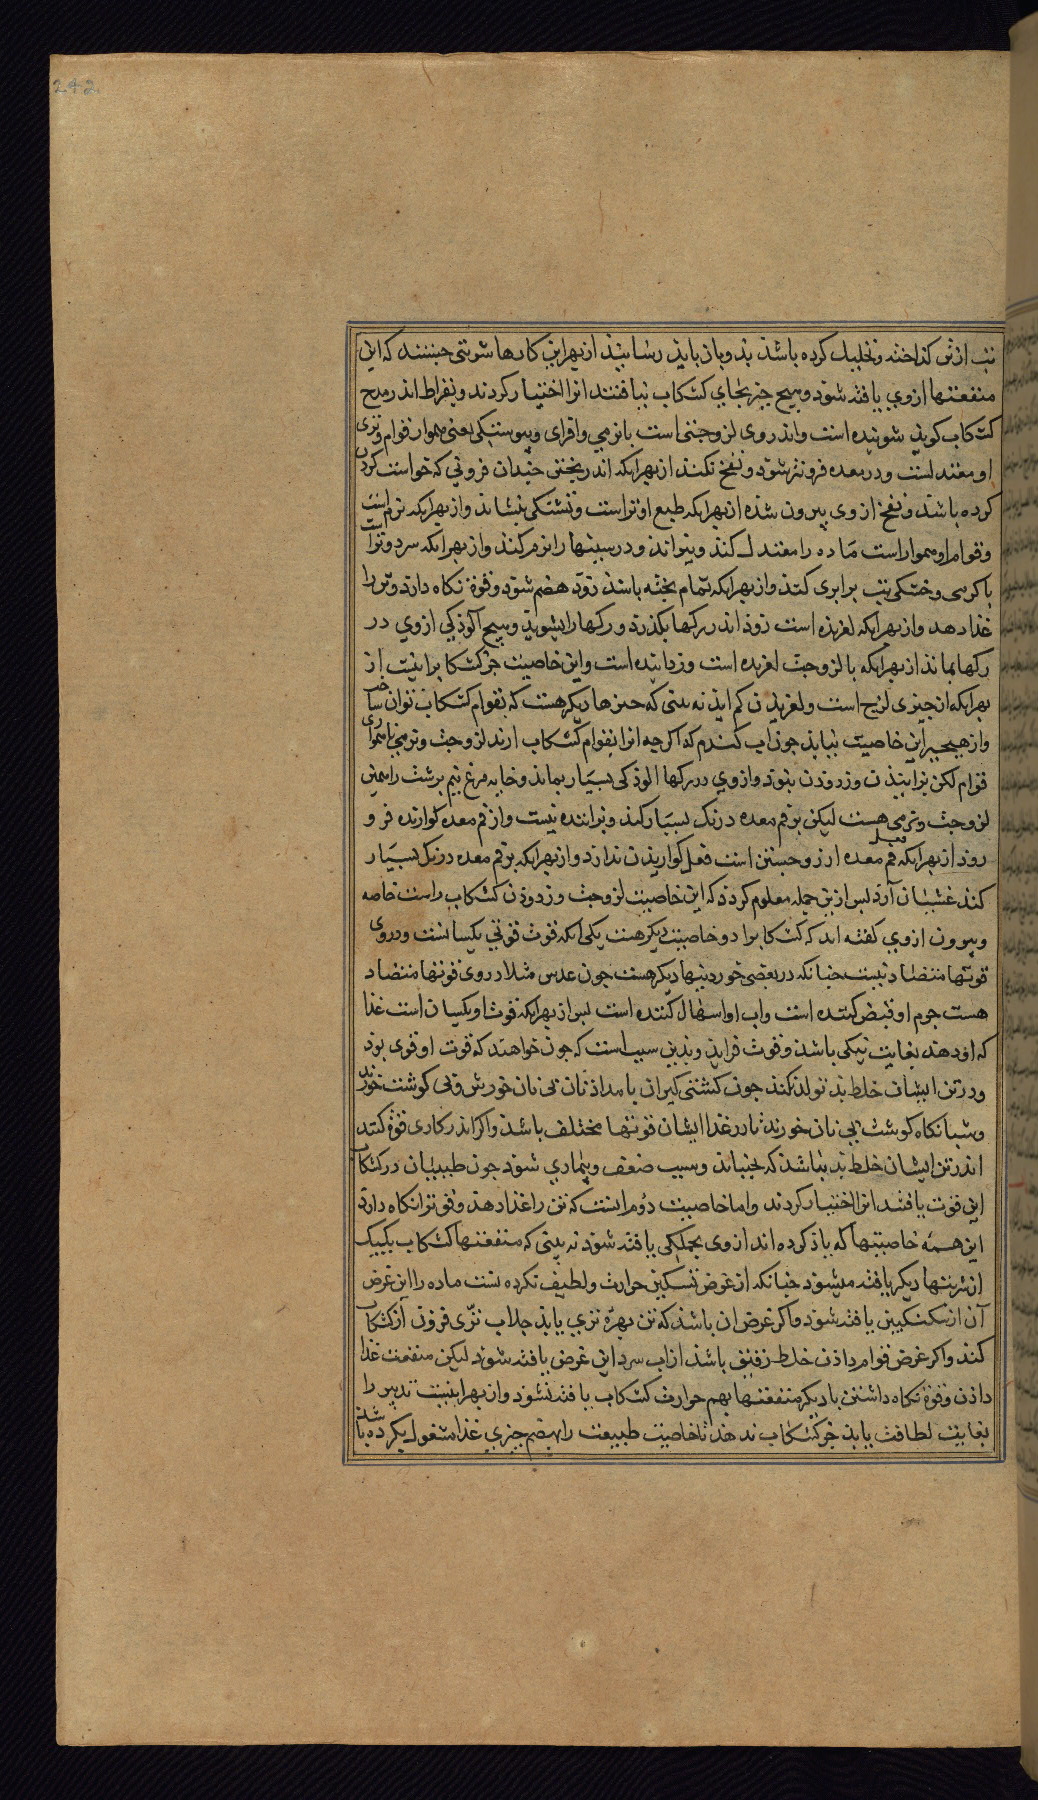 242
تب ازتن کذاخته وتحلیل کرده باشذ بذو باز بایذ رسانیذ ازبهر این کارها شربتی جستند که این
منفعتها ازوي یافته شوذ وهیچ چیز بجاي کشکاب نیافتند انرا اختیار کردند وبقراط اندر مدح
کشکاب کویذ شوینده است واندر وی لزوجتی است بانرمي واقرای وپیوستکی یعنی هموار قوام وتری
او معتدلست ودر معده فروتر شوذ ونفخ نکند ازبهر انکه اندر پختن چندان فزونی که خواست کردن
کرده باشذ ونفخ ازوی بیرون شذه ازبهر انکه طبع او تراست وتشنکی بنشاند وازبهر انکه نرم است
وقوام او هموار است ماده را معتدل کند وبپزاند ودر سینها را نرم کند وازبهر انکه سرد وتراست
با کرمی وخشکی تب برابری کند وازبهر انکه تمام پخته باشذ زوذ هضم شوذ وقوة نکاه دارد وتن را
غذا دهد وازبهر انکه لغزنده است زوذ اندر رکها بکذرد ورکها را بشویذ وهیچ آلوذکي ازوي در
رکها بماند ازبهر انکه با لزوجت لغزنده است وزداینده است واین خاصیت جز کشکاب را نیست از
بهر انکه ازچیزی لزج است ولغزیدن کم ایذ نه بینی که چیزها دیکر هست که بقوام کشکاب توان ساخت
وازهیچ چیز این خاصیت نیایذ چون اب کندم که اکرچه انرا بقوام کشکاب ارند لزوجت ونرمي وهمواری
قوام لکن براینذن وزدوذن بنوذ وازوي در رکها الوذکی بسیار بماند وخایه مرغ نیم برشت را همین
لزوجت ونرمی هست لیکن برفم معده درنک بسیار کند وبراننده نیست وازفم معده کوارنده فرو
روذ ازبهر انکه فم معده ارزوجستن است فعل کواریذن ندارد وازبهر انکه برفم معده درنک بسیار
کند غثیان آرد بس ازین جمله معلوم کردذ که این خاصیت لزوجت وزدوذن کشکاب راست خاصه
وبیرون ازوي کفته اند که کشکاب را دو خاصیت دیکر هست یکی انکه قوت قوتي یکسانست ودروی
قوتها متضاد نیست جنانکه دربعضی خوردنیها دیکر هست جون عدس مثلا دروی قوتها متضاد
هست جرم او قبض کننده است واب او اسهال کننده است بس ازبهر انکه قوت او یکسان است غذا
که او دهد بغایت نیکی باشذ وقوت فزایذ وبذین سبب است که جون خواهند که قوت او قوی بوذ
ودرتن ایشان خلط بذ تولد نکند جون کشتی کیران بامداذ نان بی نان خورش وبی کوشت خورند
وشبانکاه کوشت بی نان خورند تا درغذا ایشان قوتها مختلف باشذ واکر اندر کاری قوة کنند
اندر تن ایشان خلط بذ نباشذ که بجنباند وسبب ضعف وبیماري شوذ جون طبیبان درکشکاب
این قوت یافتند انرا اختیار کردند واما خاصیت دوم انست که تن را غذا دهذ وقوت را نکاه دارد
این همه خاصیتها که یاذ کرده اند ازوی بجملکی یافته شوذ نه بینی که منفعتها کشکاب یک یک
ازشربتها دیکر یافته میشوذ جنانکه ازغرض تسکین حرارت ولطیف نکرده نست ماده را این غرض
آن ازسکنکبین یافته شوذ واکر غرض ان باشذ که تن بهره تري یابذ جلاب تری فزون ازکشکاب
کند واکر غرض قوام داذن خلط رقیق باشذ ازاب سرد این غرض یافته شوذ لیکن منفعت غذا
داذن وقوة نکاه داشتن با دیکر منفعتها بهم جز ازکشکاب یافته نشوذ وازبهر اینست تدبیر را
بغایت لطافت یابذ جز کشکاب ندهذ تا خاصیت طبیعت را بهضم چیزي غذا مشغول نکرده باشذ